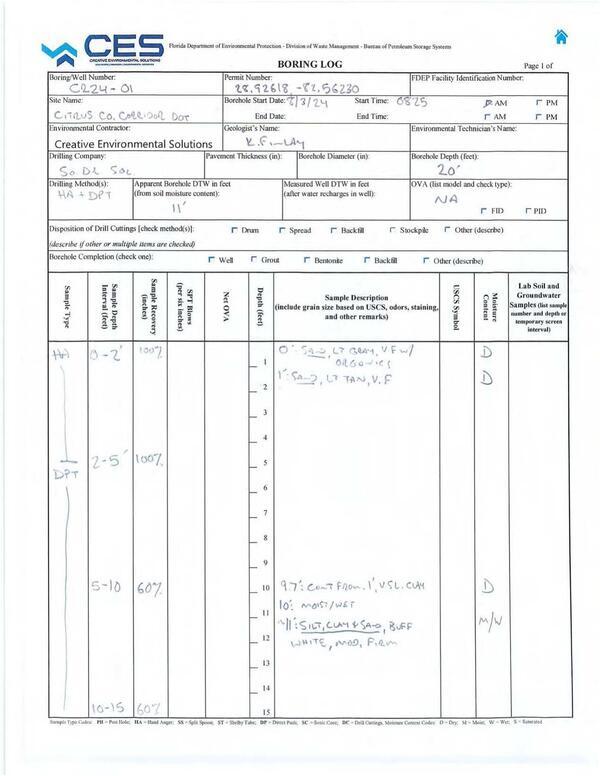 CES
CREATIVE ENVIRONMENTAL SOLUTIONS
Florida Department of Environmental Protection - Division of Waste Management - Bureau of Petroleum Storage Systems
BORING LOG
Page 1 of
Boring/Well Number: Permit Number: FDEP Facility Identification Number:
CR24-01 28.92618, -82.56230
Site Name: Borehole Start Date: 8/3/24 Start Time: 0825 AM PM
CITRUS CO. CORRIDOR DOT End Date: End Time: AM PM
Environmental Contractor: Geologist's Name: Environmental Technician's Name:
Creative Environmental Solutions K. FINLAY
Drilling Company: Pavement Thickness (in): Borehole Diameter (in): Borehole Depth (feet):
So. Dr. Sol 20'
Drilling Method(s): Apparent Borehole DTW in feet Measured Well DTW in feet OVA (list model and check type):
HA + DPT (from soil moisture content): (after water recharges in well): NA
11' FID PID
Disposition of Drill Cuttings [check method(s)]: Drum Spread Backfill Stockpile Other (describe)
(describe if other or multiple items are checked)
Borehole Completion (check one): Well Grout Bentonite Backfill Other (describe)
Sample Type Sample Depth Interval (feet) Sample Recovery (inches) SPT Blows (per six inches) Net OVA Depth (feet) Sample Description (include grain size based on USCS, odors, staining, and other remarks) USCS Symbol Moisture Content Lab Soil and Groundwater Samples (list sample number and depth or temporary screen interval)
HA 0-2' 100% 0': SAND, LT GRAY, V.F W/ D
1 ORGANICS
1': SAND, LT TAN, V.F D
2
3
4
2-5' 100% 5
DPT
6
7
8
9
5-10 60% 10 9.7': CONT FROM 1', V SL. CLAY D
10': MOIST/WET
11 ~11': SILT, CLAY & SAND, BUFF M/W
12 WHITE, MOD. FIRM
13
14
10-15 60% 15
Sample Type Codes: PH = Post Hole; HA = Hand Auger; SS = Split Spoon; ST = Shelby Tube; DP = Direct Push; SC = Sonic Core; DC = Drill Cuttings, Moisture Content Codes: D = Dry; M = Moist; W = Wet; S = Saturated